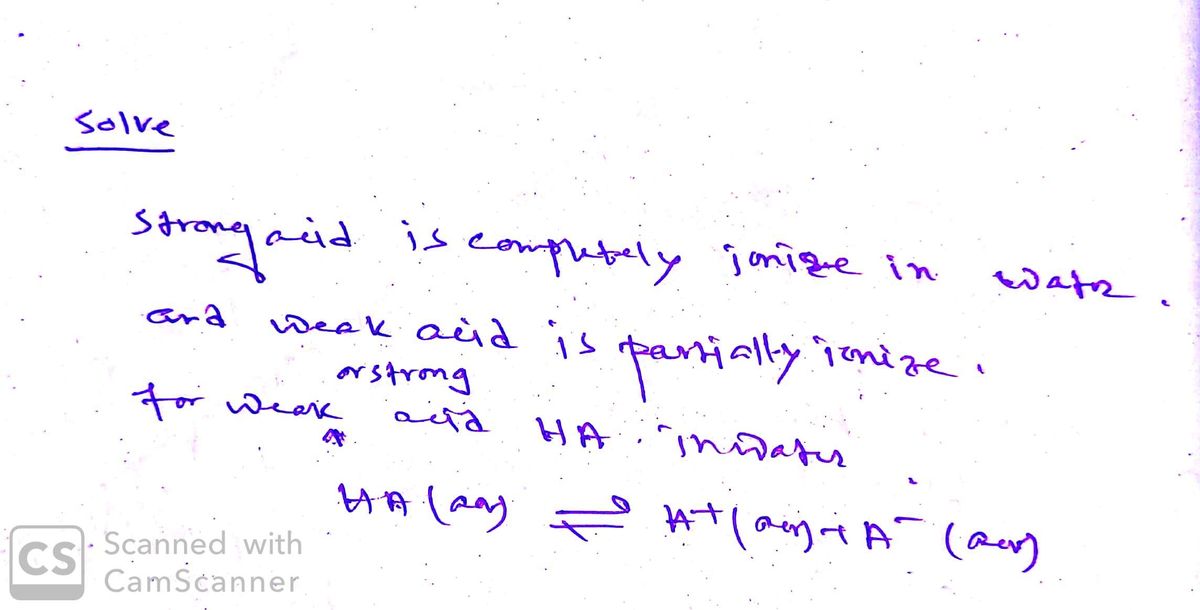 Solve
Strong acid is completely ionize in water.
and weak acid is partially ionize.
or strong
for weak acid HA in water
HA (aq) ⇌ H+ (aq) + A- (aq)
CS Scanned with
CamScanner